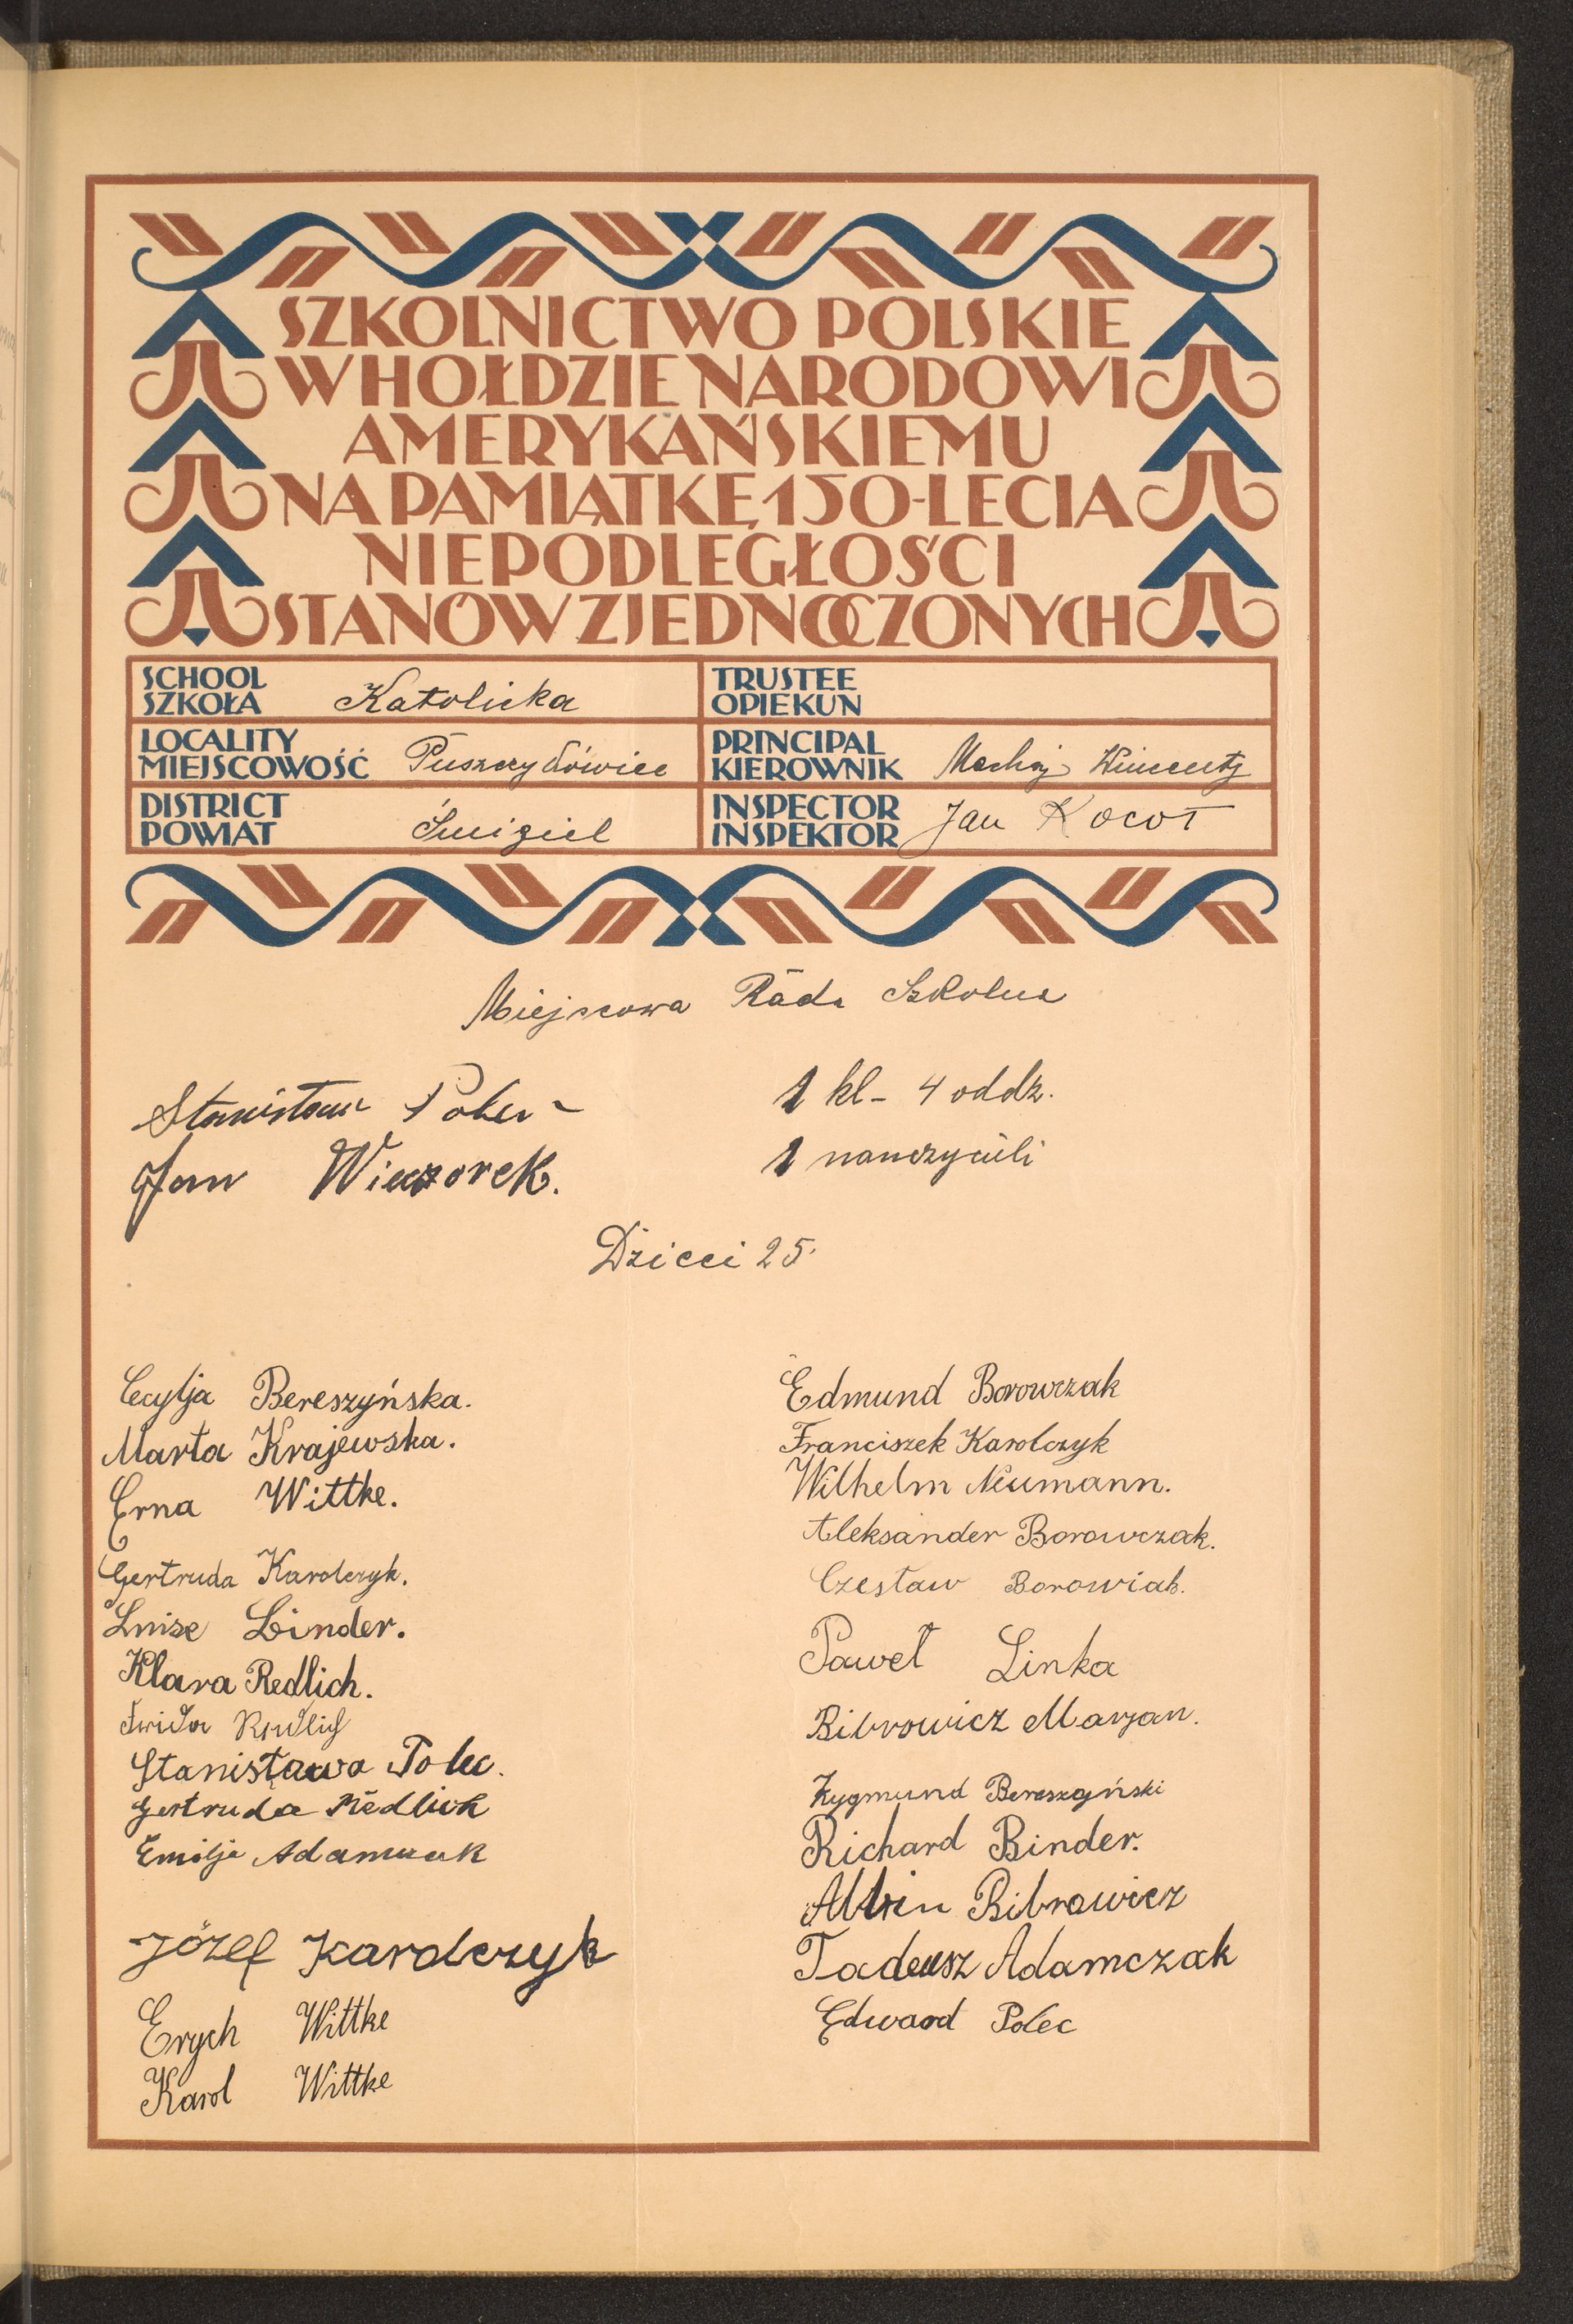 SZKOLNICTWO POLSKIE
W HOŁDZIE NARODOWI
AMERYKAŃSKIEMU
NA PAMIĄTKĘ 150-LECIA
NIEPODLEGŁOŚCI
STANÓW ZJEDNOCZONYCH
SCHOOL
SZKOŁA Katolicka
TRUSTEE
OPIEKUN
LOCALITY
MIEJSCOWOŚĆ
PRINCIPAL
KIEROWNIK Wincenty
DISTRICT
POWIAT Śmigiel
INSPECTOR
INSPEKTOR Jan Kocot
Miejscowa Rada Szkolna
Stanisław
Jan Wieczorek.
1 kl- 4 oddz.
1 nauczycieli
Dzieci 25
Cecylja Bereszyńska.
Marta Krajewska.
Erna Wittke.
Gertruda Karolczyk.
Luise Binder.
Klara Redlich.
Frida Redlich
Stanisława Polec.
Gertruda Redlich
Emilja Adamczak
Józef Karolczyk
Erych Wittke
Karol Wittke
Edmund Borowczak
Franciszek Karolczyk
Wilhelm Neumann.
Aleksander Borowczak.
Czesław Borowiak.
Paweł Linka
Bibrowicz Marjan.
Zygmund Bereszyński
Richard Binder.
Albin Bibrowicz
Tadeusz Adamczak
Edward Polec